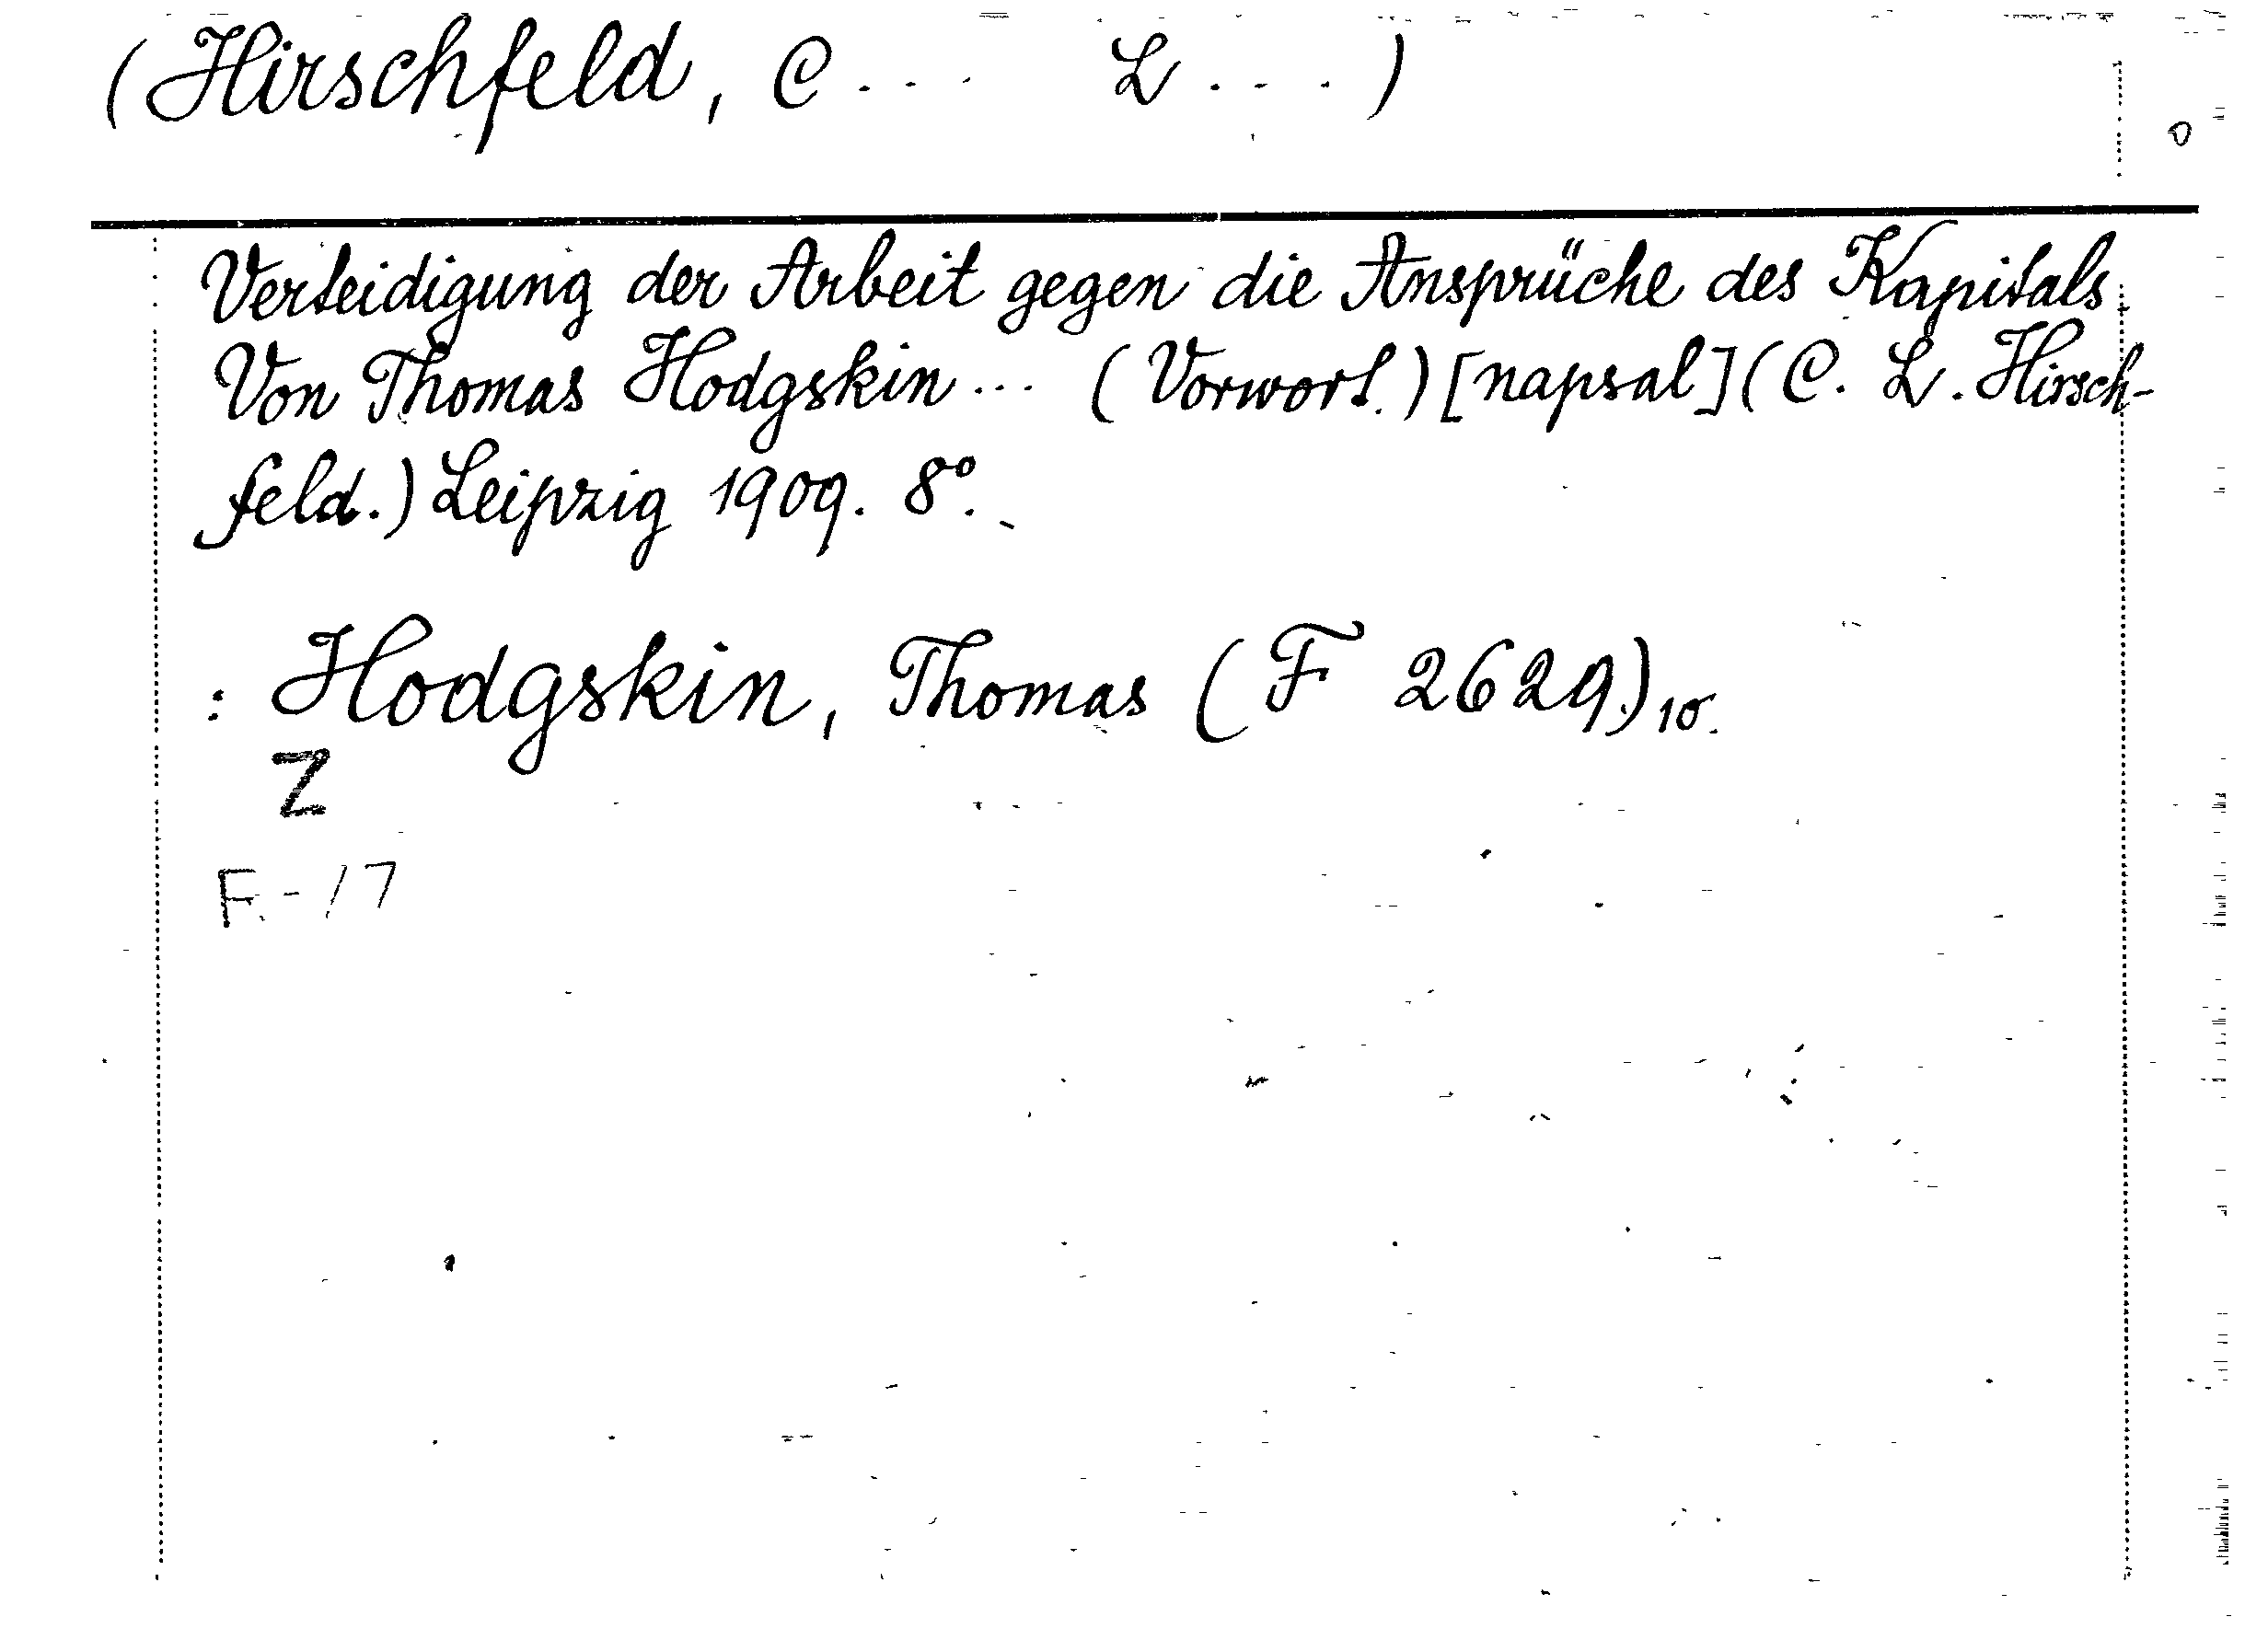 (Hirschfeld, C... L...)
Verteidigung der Arbeit gegen die Ansprüche des Kapitals.
Von Thomas Hodgskin... (Vorwort.) [napsal] (C. L. Hirsch-
feld.) Leipzig 1909. 8°.
: Hodgskin, Thomas (F 2629.)
Z
F.-17